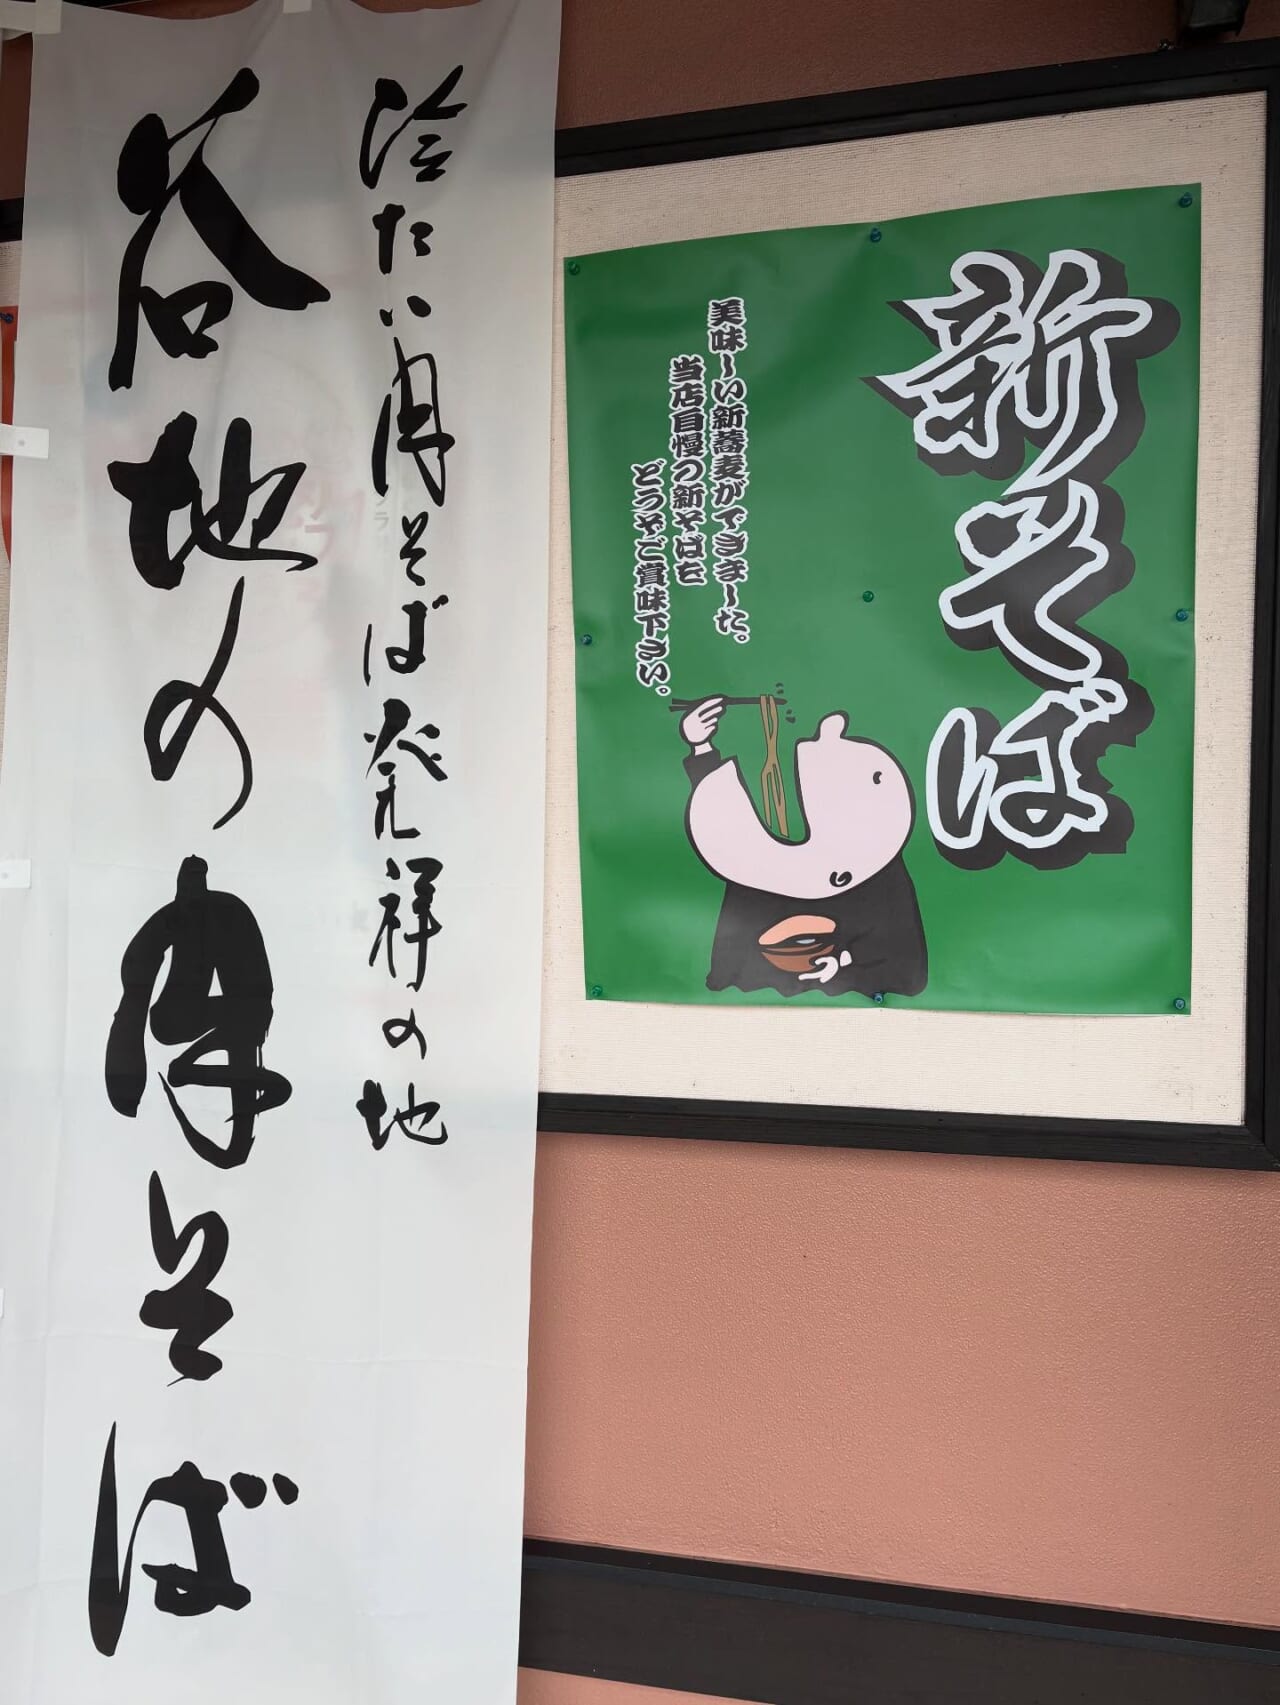 冷たい肉そば発祥の地
谷地の肉そば
新そば
美味ーい新蕎麦ができまーた。
当店自慢の新そばを
どうぞご賞味下さい。